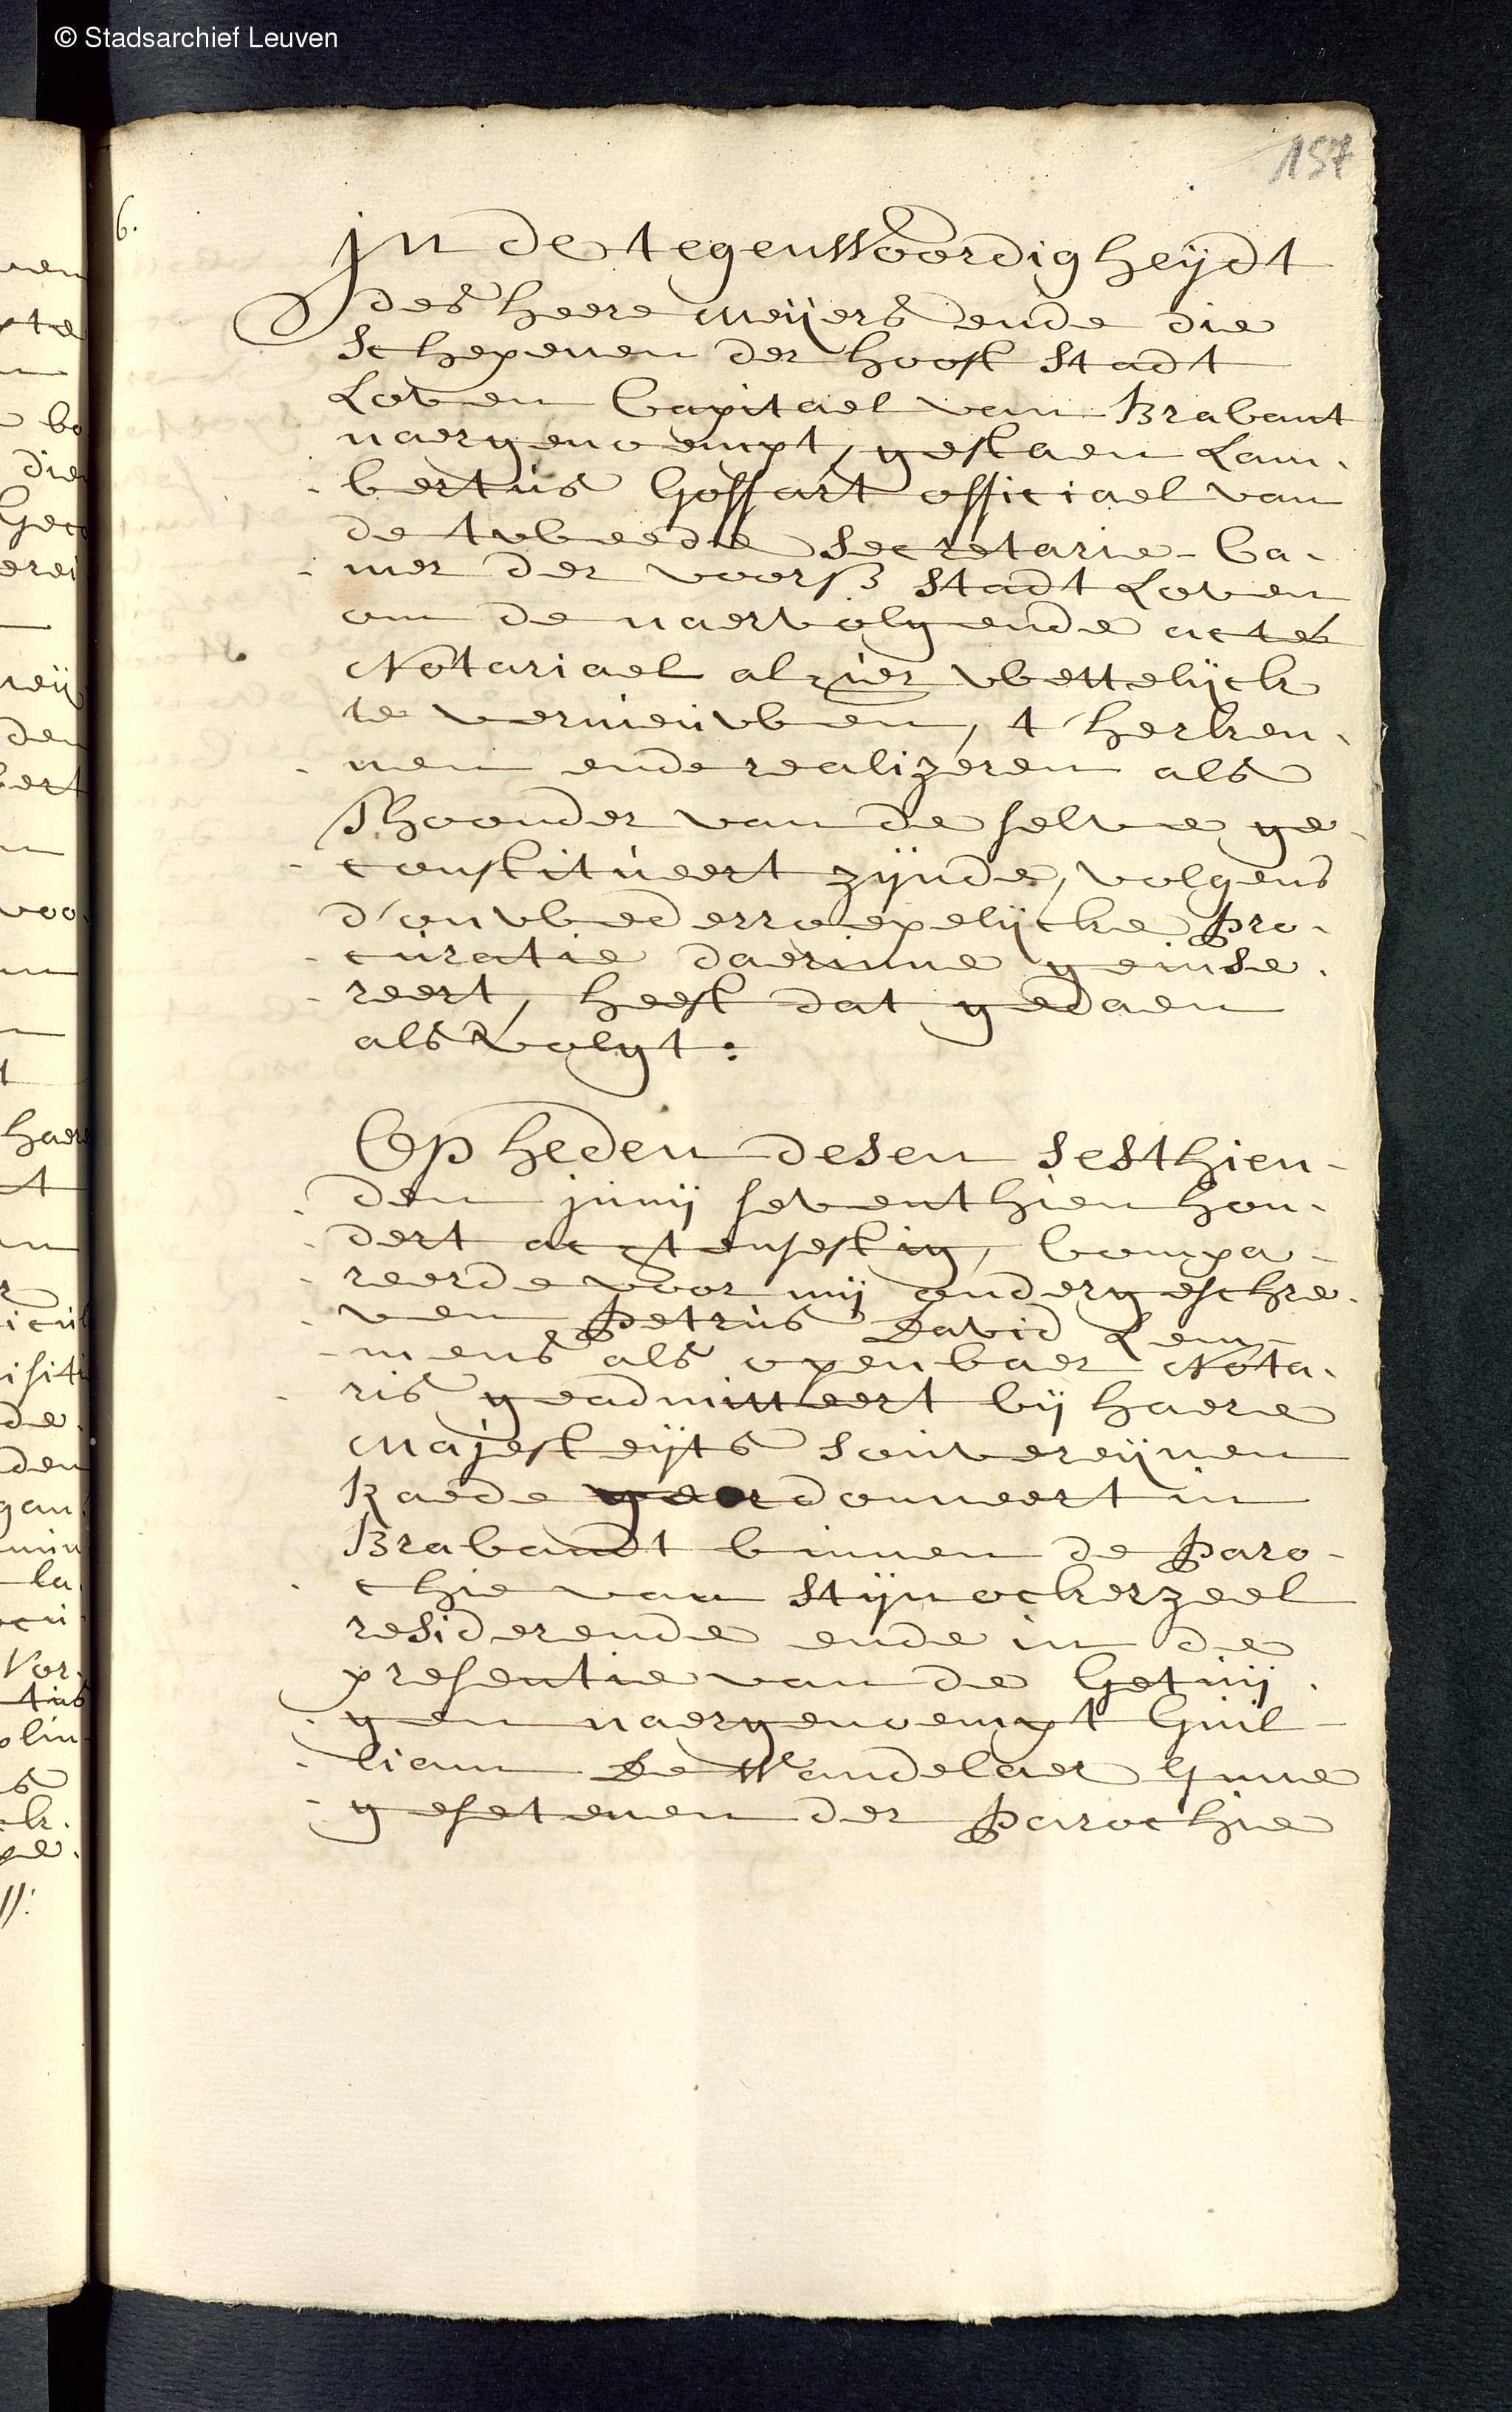 © Stadsarchief Leuven
157
6.
in de tegenwoordigheijdt
des heere meijers ende die
schepenen der hooft stadt
Loven Capitael van Brabant
naergenoempt, gestaen Lam-
-bertus Goffart officiael van
de tweede Secretarie-Ca-
-mer der voors stadt Loven
om de naervolgende acte
Notariael alhier wettelijck
te vernieuwen, t' herken-
-nen ende realizeren als
Thoonder van de selve ge-
-constitueert zijnde, volgens
d'onwederroepelijcke pro-
-curatie daerinne geinse-
-reert, heeft dat gedaen
als volgt:
Op heden desen sesthien-
-den junij seventhien hon-
-dert achtensestig, Compa-
-reerde voor mij ondergeschre-
-ven Petrus David Lem-
-mens als openbaer Nota-
-ris geadmitteert bij haere
Majesteijts souvereijnen
Raede geordonneert in
Brabandt binnen de Paro-
-chie van Stijnockerzeel
residerende ende in de
presentie van de Getuij-
-gen naergenoempt Guil-
-liam De Wandelaer Inne
-gesetenen der Parochie